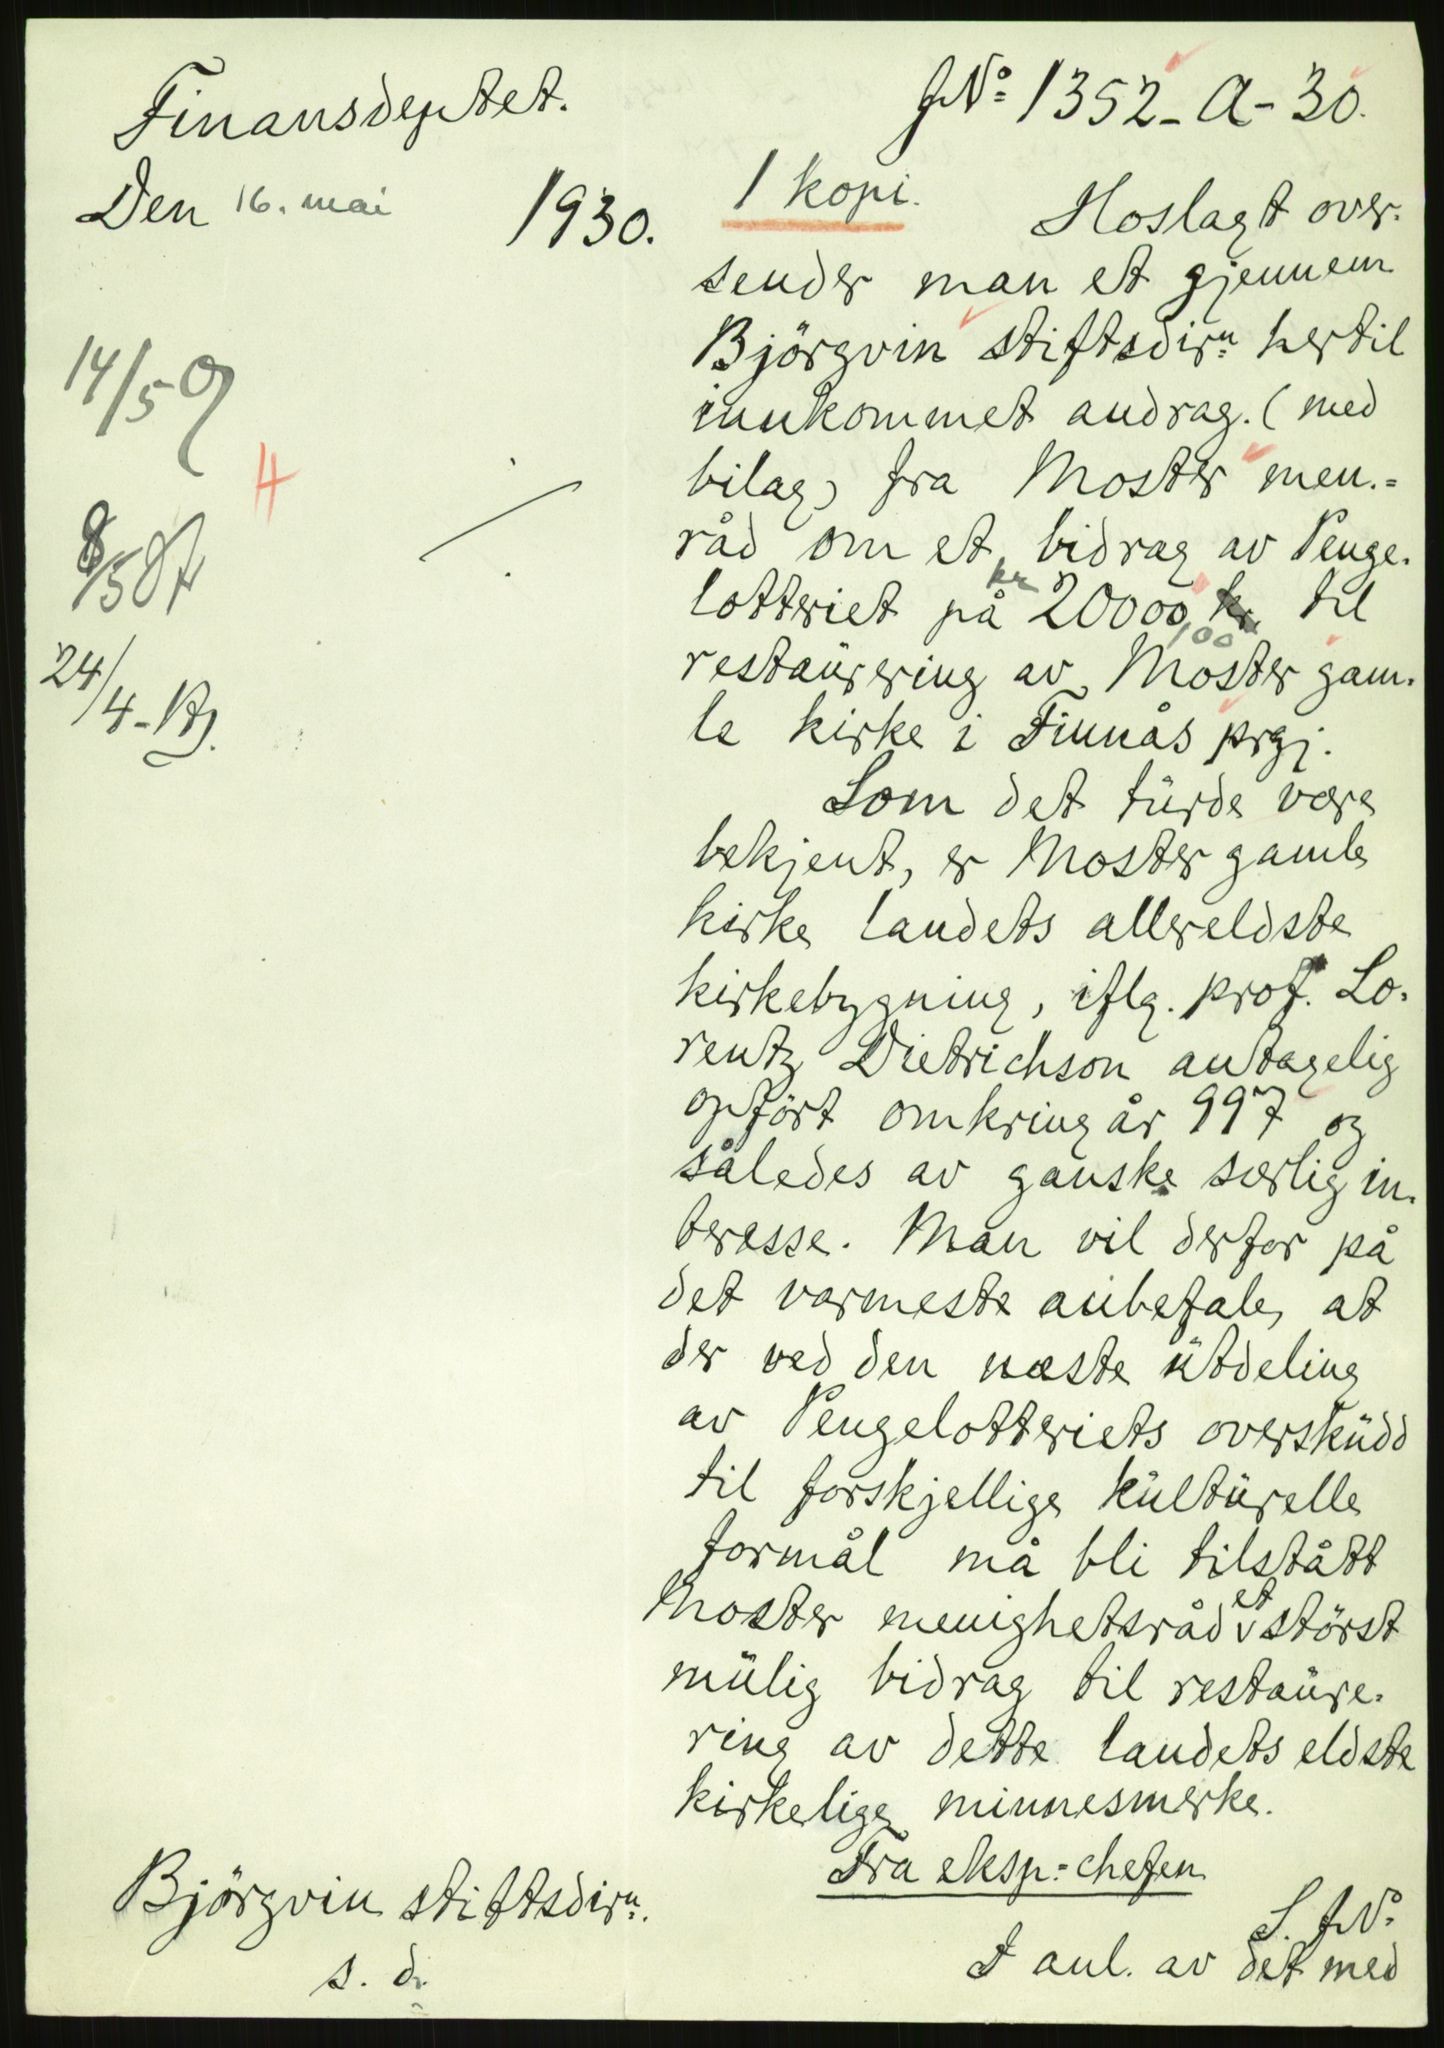 Finansdeptet.
Den 16. mai 1930.
14/5
4
8/5
24/4-
JNº 1352-A-30.
1 kopi.
Hoslagt over-
sender man et gjennem
Björgvin stiftsdirn hertil
innkommet andrag. (med
bilag) fra Moster men.=
råd om et bidrag av Penge-
lotteriet på kr 20000,00 kr. til
restaurering av Moster gam-
le kirke i Finnås prgj.
Som det turde være
bekjent, er Moster gamle
kirke landets allereldste
kirkebygning, iflg. prof. Lo-
rentz Dietrichson antagelig
opfört omkring år 997 og
således av ganske særlig in-
teresse. Man vil derfor på
det varmeste anbefale, at
der ved den næste utdeling
av Pengelotteriets overskudd
til forskjellige kulturelle
formål må bli tilstått
Moster menighetsråd et störst
mulig bidrag til restaure-
ring av dette landets eldste
kirkelige minnesmerke.
Fra eksp.=chefen
Björgvin stiftsdirn.
s. d.
S. JNº
I anl. av det med